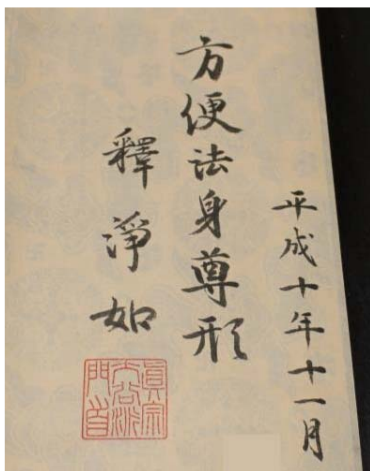 平成十年十一月
方便法身尊形
釋淨如
眞宗
大谷派
門首